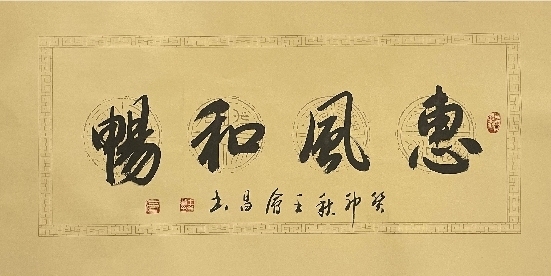 惠風和暢
癸卯秋王會昌书